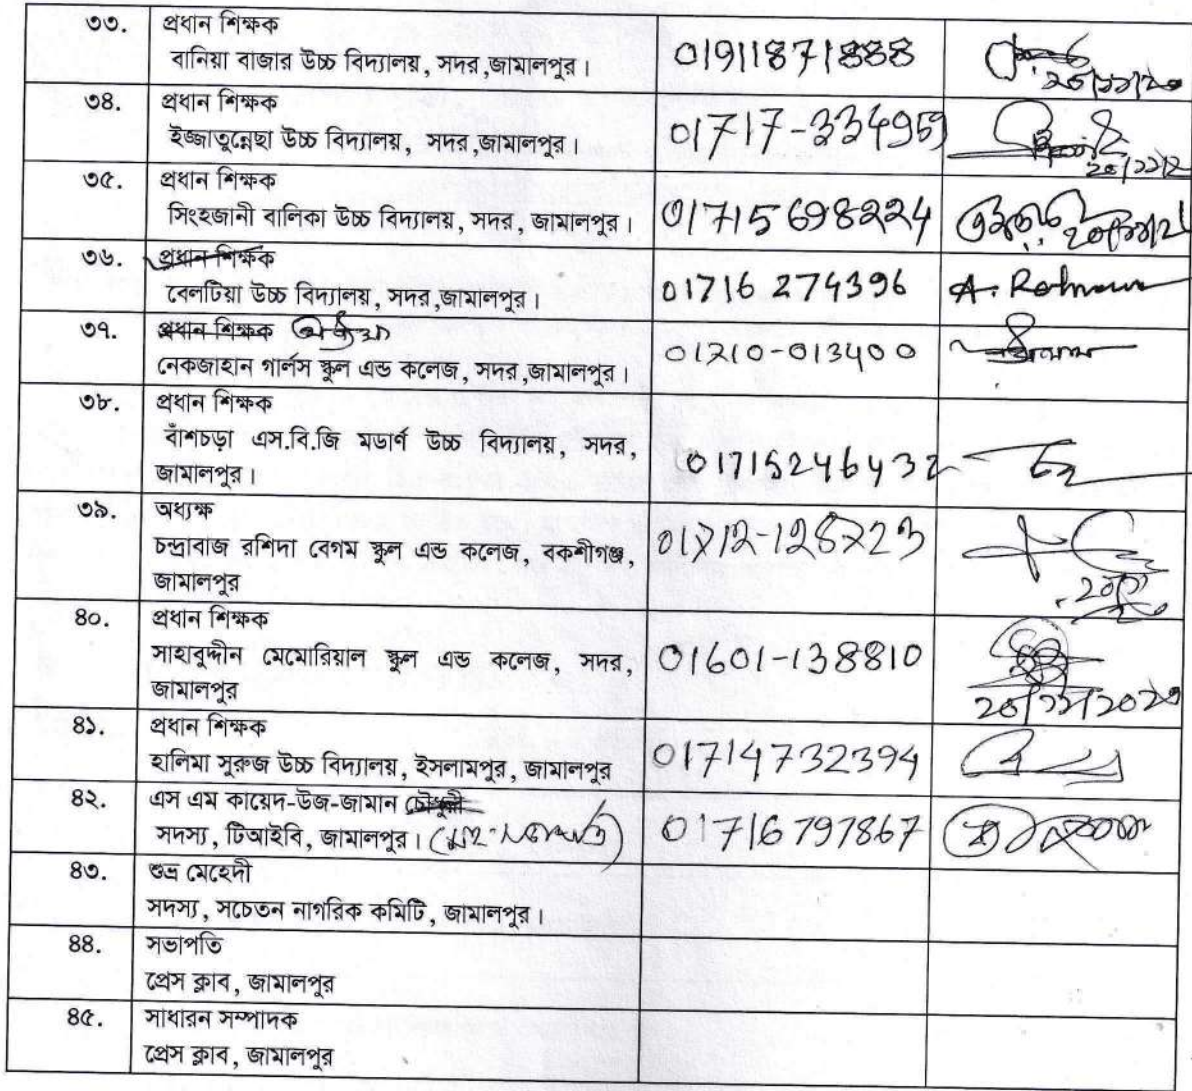 ৩৩. প্রধান শিক্ষক
বানিয়া বাজার উচ্চ বিদ্যালয়, সদর,জামালপুর। 01911871888
৩৪. প্রধান শিক্ষক
ইজ্জাতুন্নেছা উচ্চ বিদ্যালয়, সদর,জামালপুর। 01717-334959
৩৫. প্রধান শিক্ষক
সিংহজানী বালিকা উচ্চ বিদ্যালয়, সদর, জামালপুর। 01715698224
৩৬. প্রধান শিক্ষক
বেলটিয়া উচ্চ বিদ্যালয়, সদর,জামালপুর। 01716 274396 A. Rahman
৩৭. প্রধান শিক্ষক
নেকজাহান গার্লস স্কুল এন্ড কলেজ, সদর,জামালপুর।
৩৮. প্রধান শিক্ষক
বাঁশচড়া এস.বি.জি মডার্ণ উচ্চ বিদ্যালয়, সদর,
জামালপুর। 01715246432
৩৯. অধ্যক্ষ
চন্দ্রাবাজ রশিদা বেগম স্কুল এন্ড কলেজ, বকশীগঞ্জ,
জামালপুর
৪০. প্রধান শিক্ষক
সাহাবুদ্দীন মেমোরিয়াল স্কুল এন্ড কলেজ, সদর, 01601-138810
জামালপুর
৪১. প্রধান শিক্ষক
হালিমা সুরুজ উচ্চ বিদ্যালয়, ইসলামপুর, জামালপুর 01714732394
৪২. এস এম কায়েদ-উজ-জামান চৌধুরী
সদস্য, টিআইবি, জামালপুর। 01716797867
৪৩. শুভ্র মেহেদী
সদস্য, সচেতন নাগরিক কমিটি, জামালপুর।
৪৪. সভাপতি
প্রেস ক্লাব, জামালপুর
৪৫. সাধারন সম্পাদক
প্রেস ক্লাব, জামালপুর